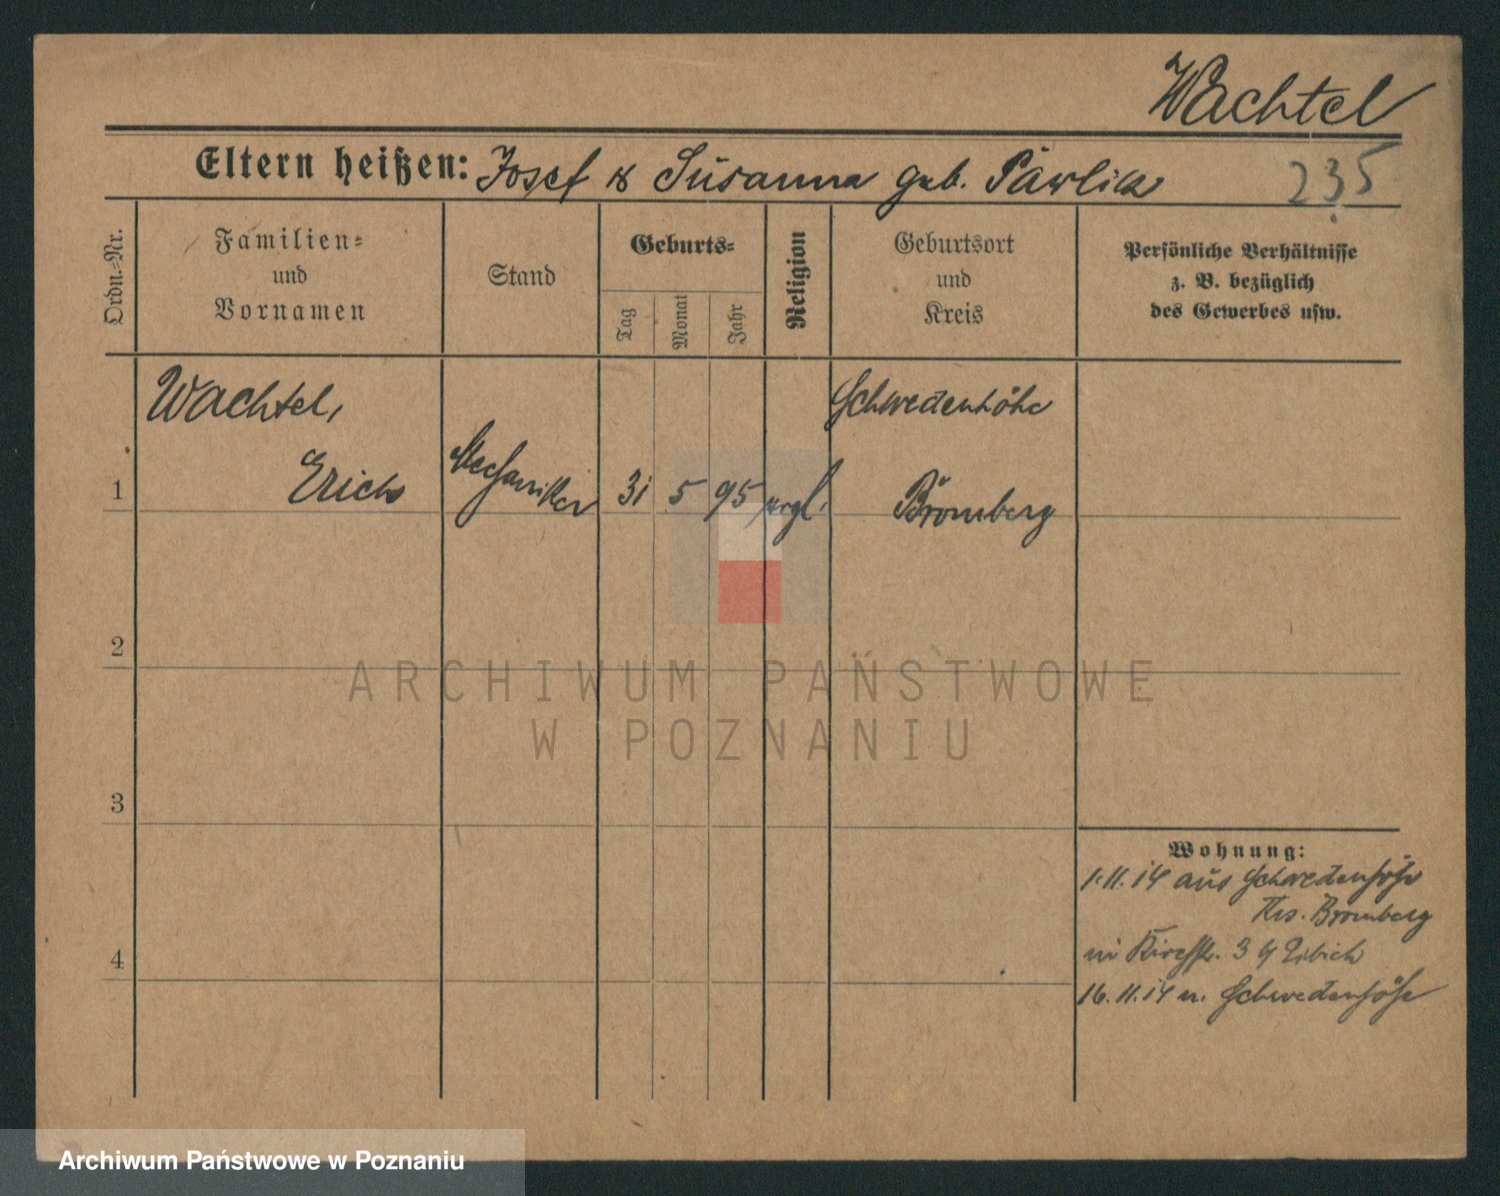 Wachtel
Eltern heißen: Josef & Susanna geb. Pawlik
235
Ordn.=Nr.
Familien=
und
Vornamen
Stand
Geburts=
Tag
Monat
Jahr
Religion
Geburtsort
und
Kreis
Persönliche Verhältnisse
z. B. bezüglich
des Gewerbes usw.
1
Wachtel,
Erich
Mechaniker
31
5
95
Schwedenhöhe
Bromberg
2
3
4
Wohnung:
1.11.14 aus Schwedenhöhe
Krs. Bromberg
in Kirchstr. 3
16.11.14 n. Schwedenhöhe
ARCHIWUM PAŃSTWOWE
W POZNANIU
Archiwum Państwowe w Poznaniu